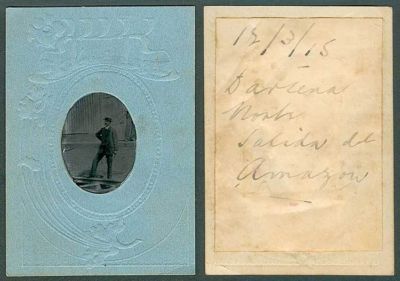 12/3/15
Darsena
Norte
Salida del
Amazon